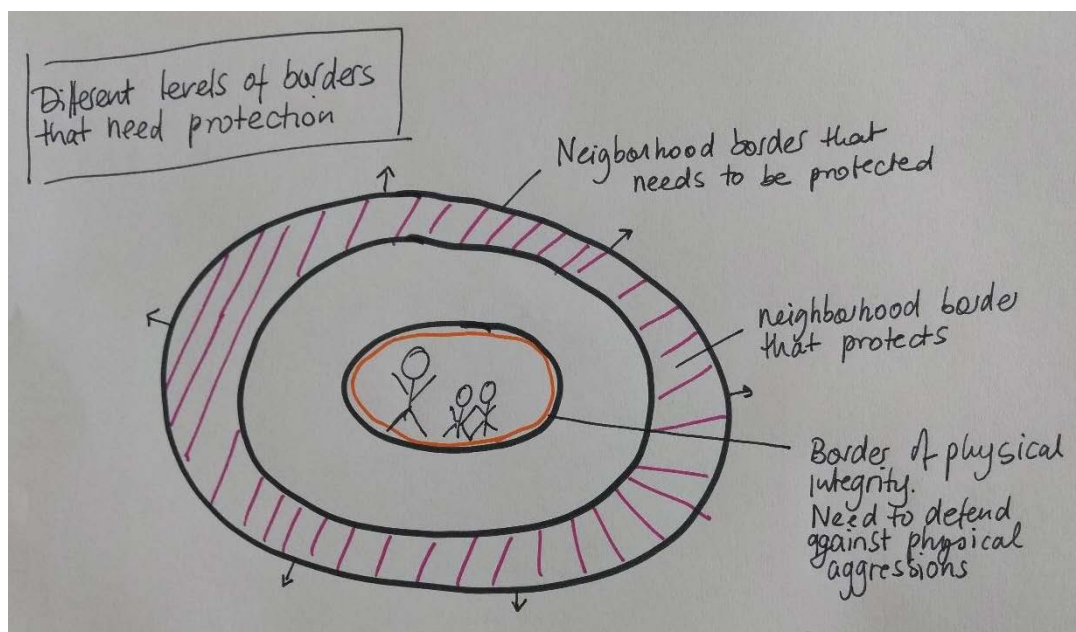 Different levels of borders
that need protection
Neigborhood border that
needs to be protected
neighborhood border
that protects
Border of physical
integrity.
Need to defend
against physical
aggressions